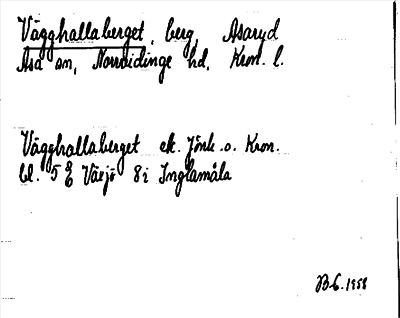 Vägghallaberget, berg, Asaryd
Asa sn, Norrvidinge hd, Kron. l.
Vägghallaberget ek. Jönk. o. Kron.
bl. 5 E Växjö 8i Inglamåla
B.G. 1958